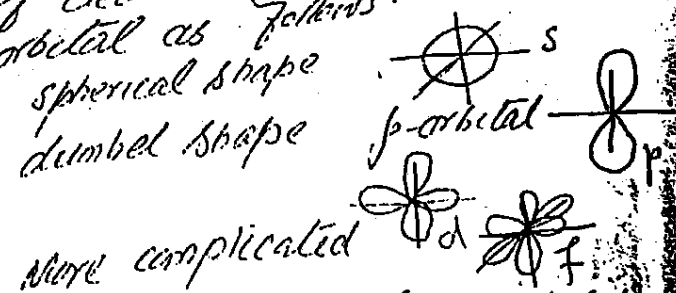 orbital as follows.
spherical shape s
dumbel shape p-orbital p
More complicated d f